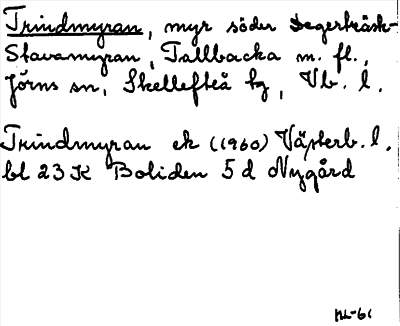 Trindmyran, myr söder Degerträsk-
Stavamyran, Tallbacka m. fl.,
Jörns sn, Skellefteå tg, Vb. l.
Trindmyran ek (1960) Västerb. l.
bl 23 K Boliden 5 d Nygård